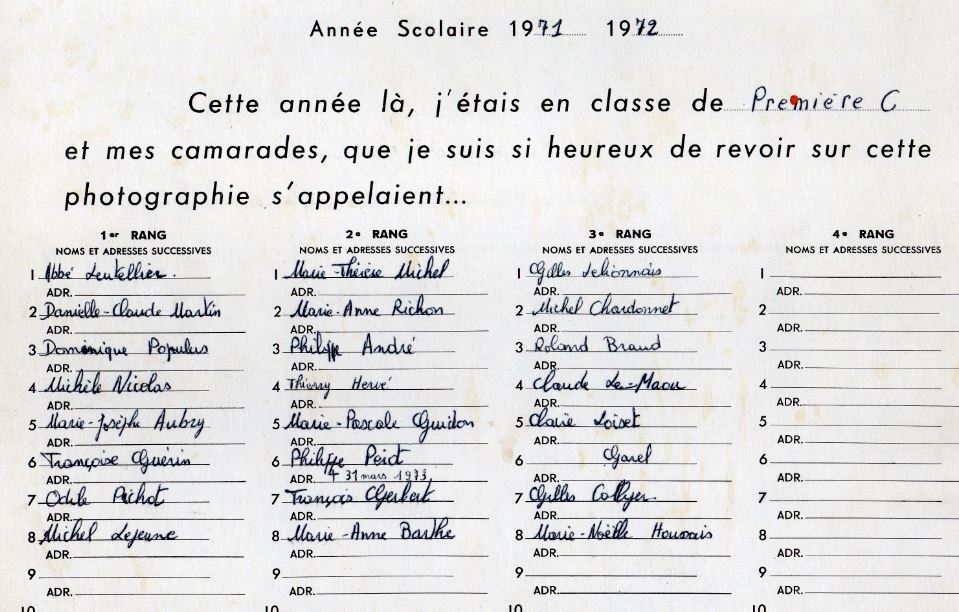 Année Scolaire 1971 1972
Cette année là, j'étais en classe de Première C
et mes camarades, que je suis si heureux de revoir sur cette
photographie s'appelaient...
1er RANG
NOMS ET ADRESSES SUCCESSIVES
1 Abbé
ADR.
2 Danielle-Claude Martin
ADR.
3 Dominique Populus
ADR.
4 Michèle Nicolas
ADR.
5 Marie-Josèphe Aubry
ADR.
6 Françoise Guérin
ADR.
7 Odile Pichot
ADR.
8 Michel Lejeune
ADR.
9
ADR.
10
2e RANG
NOMS ET ADRESSES SUCCESSIVES
1 Marie-Thérèse Michel
ADR.
2 Marie-Anne Richon
ADR.
3 Philippe André
ADR.
4 Thierry Hervé
ADR.
5 Marie-Pascale Guidon
ADR.
6 Philippe
ADR. † 31 mars 1973
7 François Gerbert
ADR.
8 Marie-Anne Barthe
ADR.
9
ADR.
10
3e RANG
NOMS ET ADRESSES SUCCESSIVES
1 Gilles
ADR.
2 Michel Chardonnet
ADR.
3 Roland Braud
ADR.
4 Claude Le-Maou
ADR.
5 Claire Loiset
ADR.
6 Garel
ADR.
7 Gilles Collyer
ADR.
8 Marie-Noëlle Houssais
ADR.
9
ADR.
10
4e RANG
NOMS ET ADRESSES SUCCESSIVES
1
ADR.
2
ADR.
3
ADR.
4
ADR.
5
ADR.
6
ADR.
7
ADR.
8
ADR.
9
ADR.
10